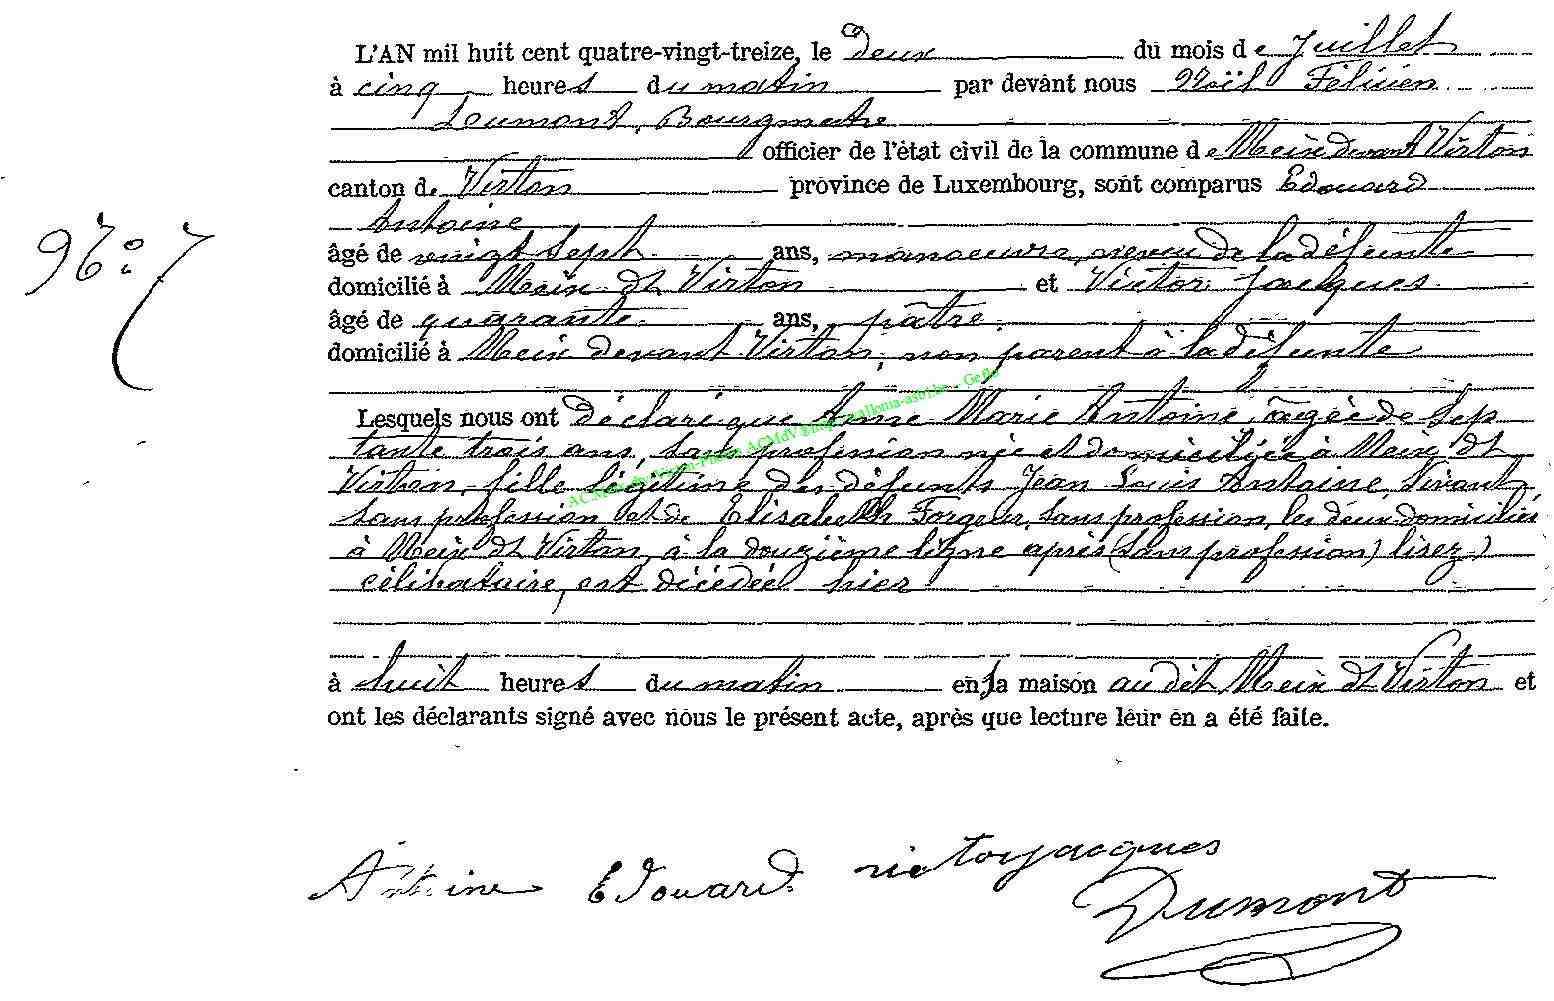 L'AN mil huit cent quatre-vingt-treize, le deux du mois de Juillet
à cinq heures du matin par devant nous Noël Félicien
Dumont, Bourgmestre
officier de l'état civil de la commune de Meix devant Virton
canton de Virton province de Luxembourg, sont comparus Edouard
Antoine
âgé de vingt sept ans, manoeuvre, neveu de la défunte
domicilié à Meix dt Virton et Victor Jacques
N° 7
âgé de quarante ans, pâtre,
domicilié à Meix devant Virton, non parent à la défunte
Lesquels nous ont déclaré que Anne Marie Antoine, âgée de sep
tante trois ans, sans profession née et domiciliée à Meix dt
Virton, fille légitime des défunts Jean Louis Antoine, vivant
sans profession et de Elisabeth Forgeur, sans profession, les deux domiciliés
à Meix dt Virton, à la douzième ligne après (sans profession) lisez)
célibataire, est décédée hier
à huit heures du matin en la maison au dit Meix dt Virton et
ont les déclarants signé avec nous le présent acte, après que lecture leur en a été faite.
Antoine Edouard victor jacques
Dumont